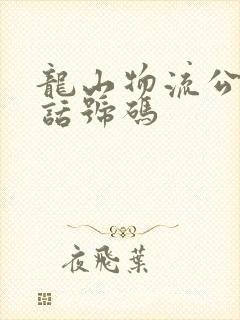 龍山物流公
話號碼
夜飛葉